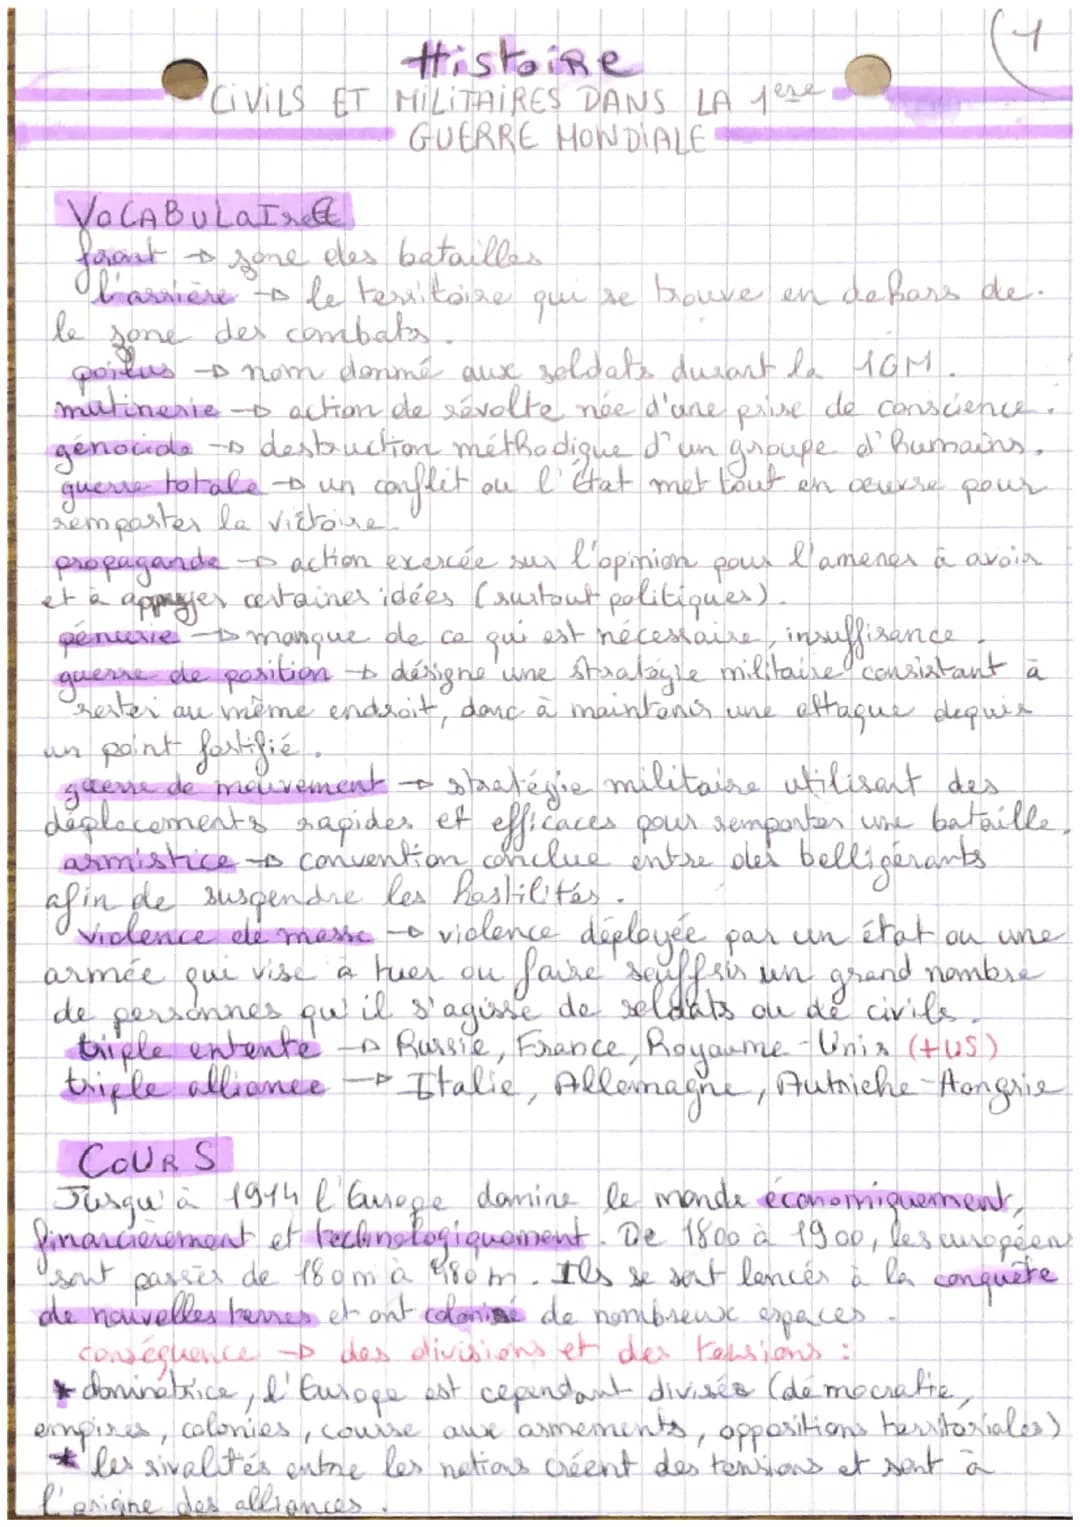 (1
Histoire
CIVILS ET MILITAIRES DANS LA 1ere
GUERRE MONDIALE
VOCABULAIRE
front → zone des batailles
l'arrière → le territoire qui se trouve en dehors de
la zone des combats.
poilus → nom donné aux soldats durant la 1GM.
mutinerie → action de révolte née d'une prise de conscience.
génocide → destruction méthodique d'un groupe d'humains.
guerre totale → un conflit ou l'État met tout en oeuvre pour
remporter la victoire.
propagande → action exercée sur l'opinion pour l'amener à avoir
et à appuyer certaines idées (surtout politiques).
pénurie → manque de ce qui est nécessaire, insuffisance.
guerre de position → désigne une stratégie militaire consistant à
rester au même endroit, donc à maintenir une attaque depuis
un point fortifié.
guerre de mouvement → stratégie militaire utilisant des
déplacements rapides et efficaces pour remporter une bataille.
armistice → convention conclue entre des belligérants
afin de suspendre les hostilités.
violence de masse → violence déployée par un état ou une
armée qui vise à tuer ou faire souffrir un grand nombre
de personnes qu'il s'agisse de soldats ou de civils.
triple entente → Russie, France, Royaume-Unis (+US)
triple alliance → Italie, Allemagne, Autriche-Hongrie
COURS
Jusqu'à 1914 l'Europe domine le monde économiquement,
financièrement et technologiquement. De 1800 à 1900, les européens
sont passés de 180m à 480m. Ils se sont lancés à la conquête
de nouvelles terres et ont colonisé de nombreux espaces.
conséquence → des divisions et des tensions :
* dominatrice, l'Europe est cependant divisée (démocratie,
empires, colonies, course aux armements, oppositions territoriales)
* les rivalités entre les nations créent des tensions et sont à
l'origine des alliances.